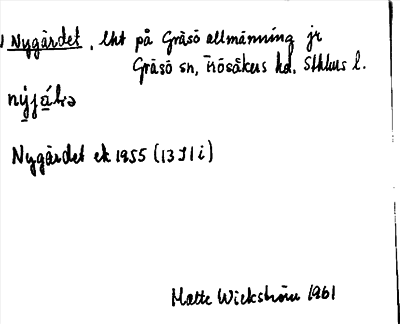 Nygärdet, lht på Gräsö allmänning jr
Gräsö sn, Frösåkers hd, Sthlms l.
Nygärdet ek 1955 (13J1i)
Matte Wickström 1961